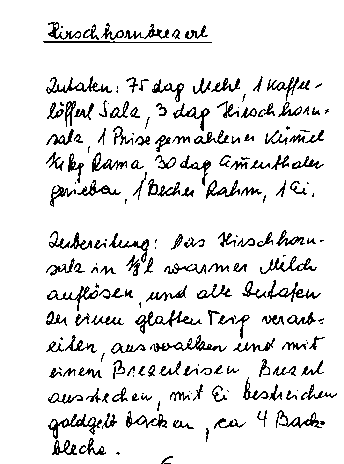 Hirschhornbrezerl
Zutaten: 75 dag Mehl, 1 Kaffee-
löfferl Salz, 3 dag Hirschhorn-
salz, 1 Prise gemahlener Kümmel
1/4 kg Rama, 30 dag Emmenthaler
gerieben, 1 Becher Rahm, 1 Ei.
Zubereitung: Das Hirschhorn-
salz in l warmer Milch
auflösen, und alle Zutaten
zu einen glatten Teig verarb-
eiten, auswalken und mit
einem Brezerleisen, Brezerl
ausstechen, mit Ei bestreichen
goldgelb backen, ca 4 Back-
bleche.